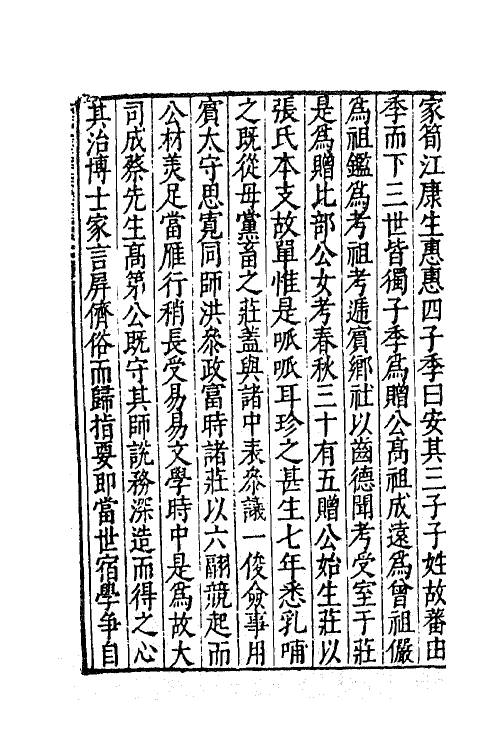 家筍江康生惠惠四子季曰安其三子子姓故蕃由
季而下三世皆獨子季為贈公高祖成遠為曾祖儼
為祖鑑為考祖考遞賓鄉社以齒德聞考受室于莊
是為贈比部公女考春秋三十有五贈公始生莊以
張氏本支故單惟是呱呱耳珍之甚生七年悉乳哺
之既從母黨畜之莊蓋與諸中表參議一俊僉事用
賓太守思寬同師洪參政富時諸莊以六翮競起而
公材美足當雁行稍長受易易文學時中是為故大
司成蔡先生高第公既守其師說務深造而得之心
其治博士家言屏儕俗而歸指要即當世宿學爭自